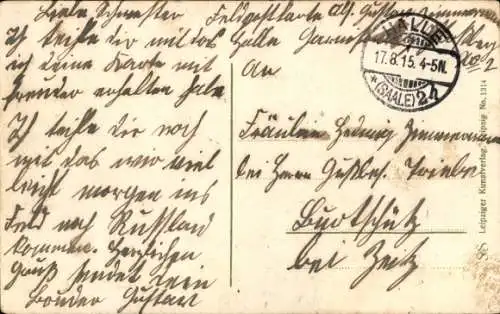 Liebe Schwester
Ich teihle dir mit das
ich deine Karte mit
Freuden erhalten habe
Ich teihle dir noch
mit das wir viel
leicht morgen ins
Feld nach Russland
kommen. Herzlichen
Gruß sendet dein
Bruder Gustav
Feldpostkarte Abs. Gustav Zimmermann
Halle Garnison
HALLE
17.8.15. 4-5N.
* (SAALE) 24
An
Fräulein Hedwig Zimmermann
bei Herrn Gustav
Burtschütz
bei Zeitz
Leipziger Kunstverlag, Leipzig No. 131